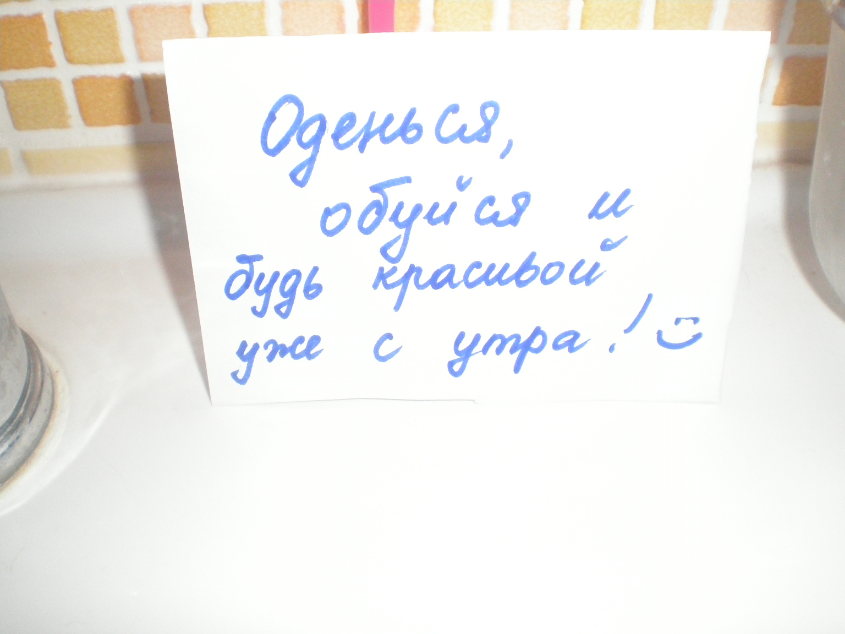 Оденься,
обуйся и
будь красивой
уже с утра!